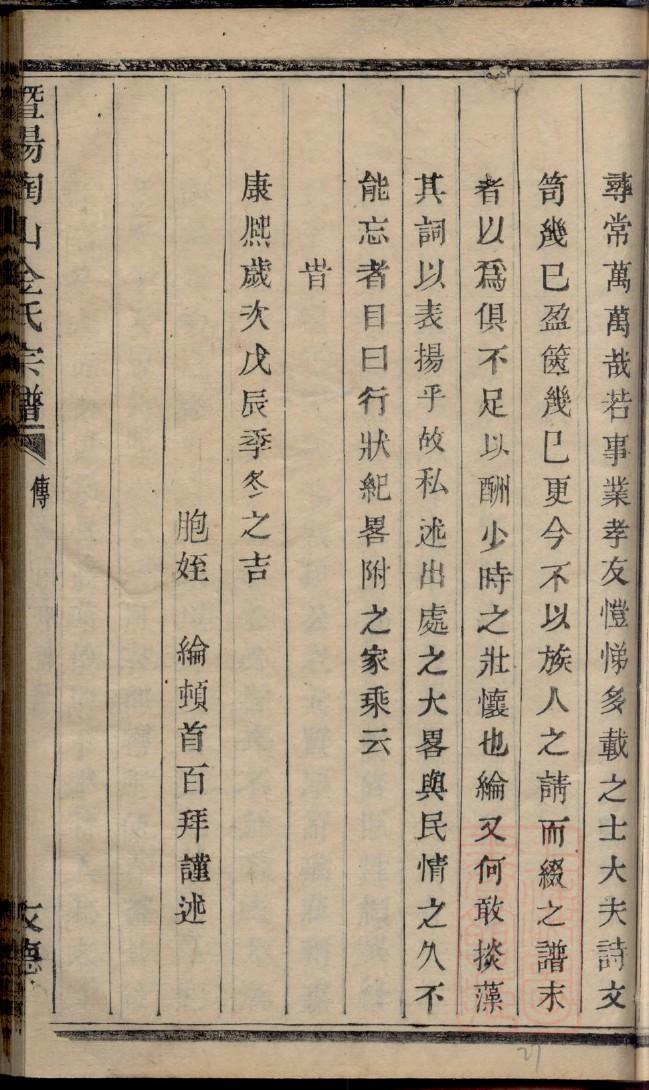 尋常萬萬哉若事業孝友愷悌多載之士大夫詩文
笥幾已盈篋幾已更今不以族人之請而綴之譜末
者以爲俱不足以酬少時之壯懷也綸又何敢掞藻
其詞以表揚乎故私述出處之大畧與民情之久不
能忘者目曰行狀紀畧附之家乘云
旹
康熈歲次戊辰季冬之吉
胞姪 綸頓首百拜謹述
暨陽陶山金氏宗譜 傳 文德
21